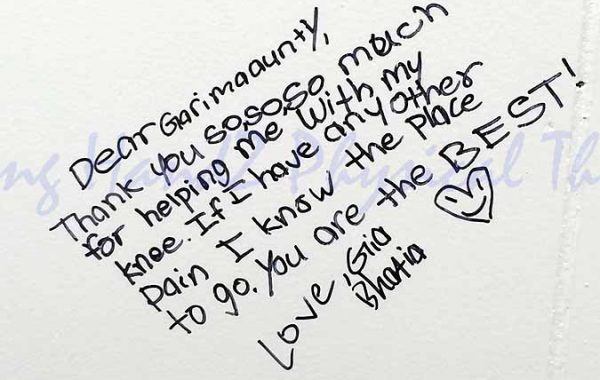 Dear Garima aunty,
Thank you so,so,so much
for helping me with my
knee. If I have any other
pain I know the place
to go. You are the BEST!
Love, Gia
Bhatia